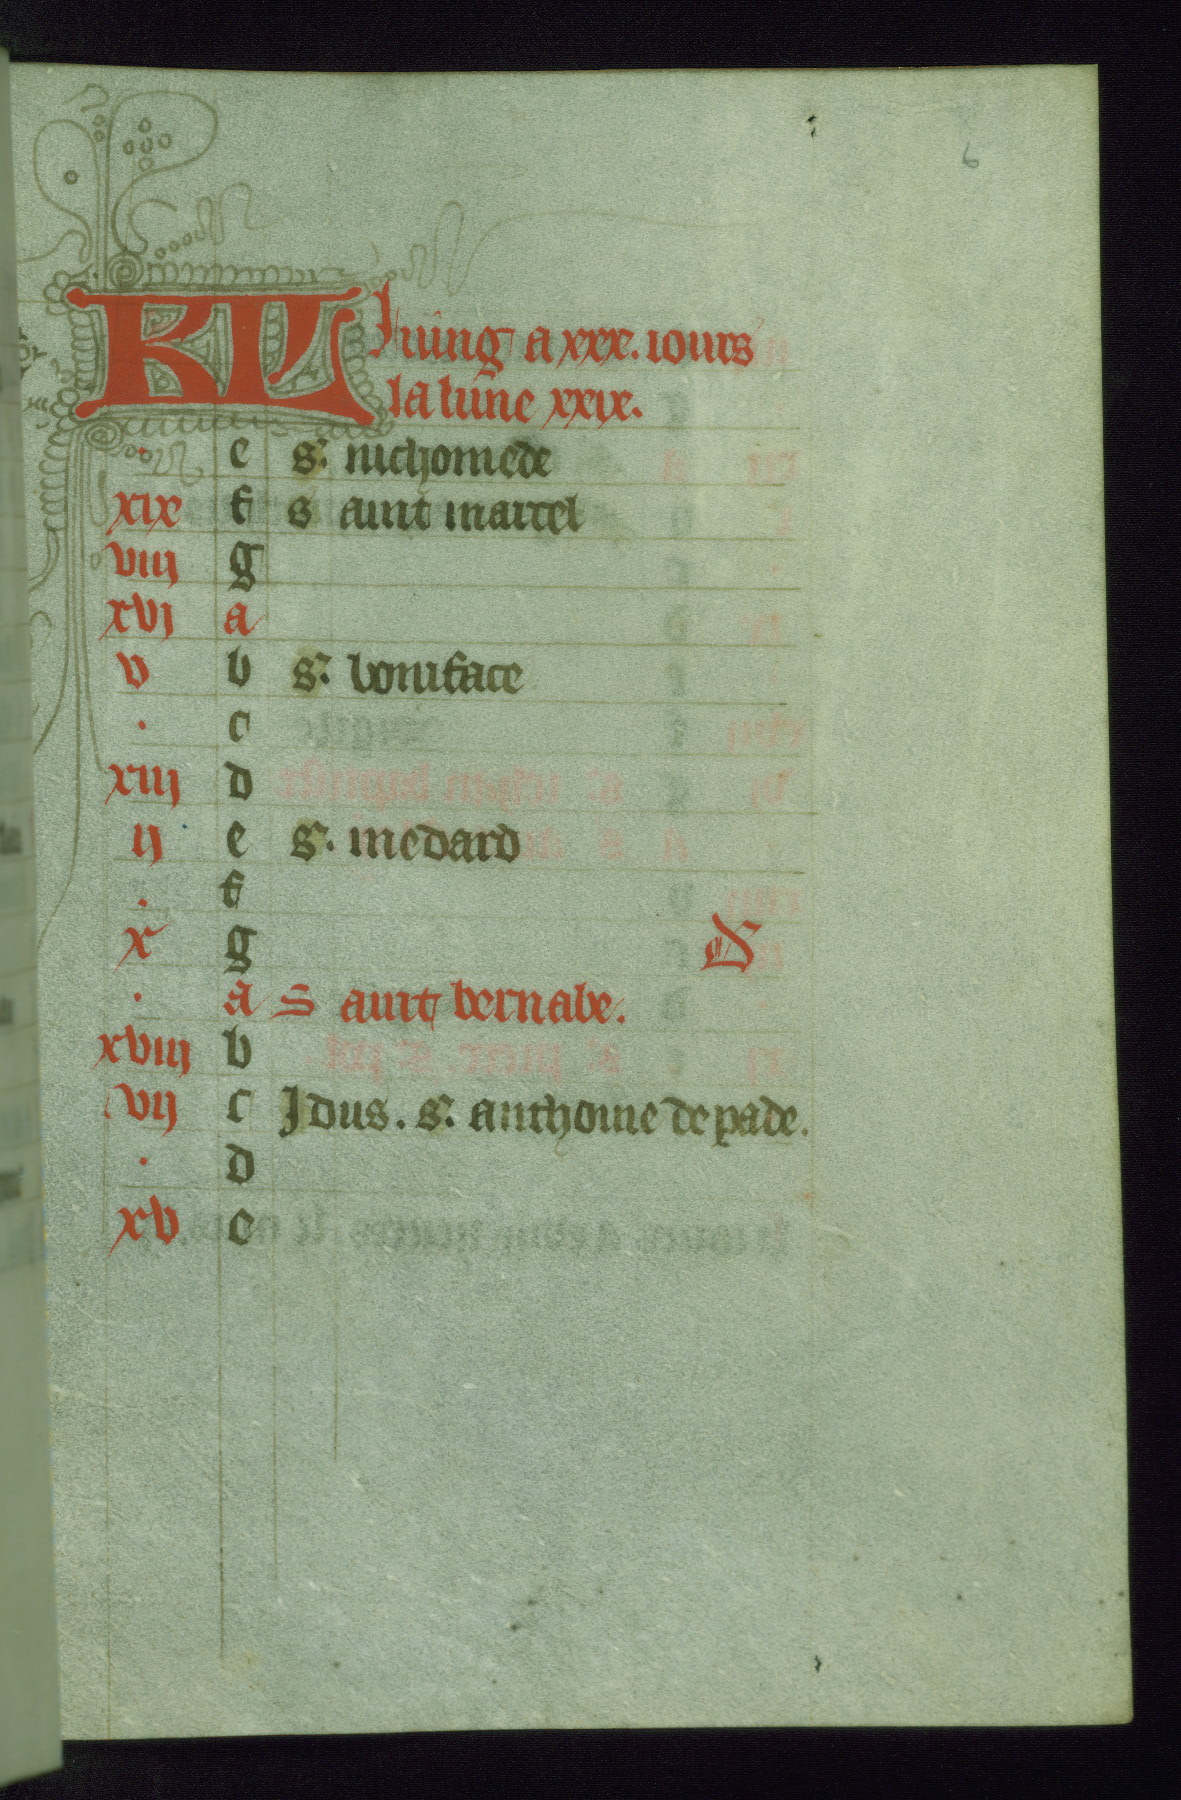 6
KL Juing a xxx. iours
la lune xxix.
. e s. nichomede
xix f s aint marcel
viij g
xvj a
v b s. boniface
. c
xiij d
ij e s. medard
. f
x g S
. a s aint bernabe.
xviij b
vij c Jdus. s. anthoine de pade.
. d
xv e